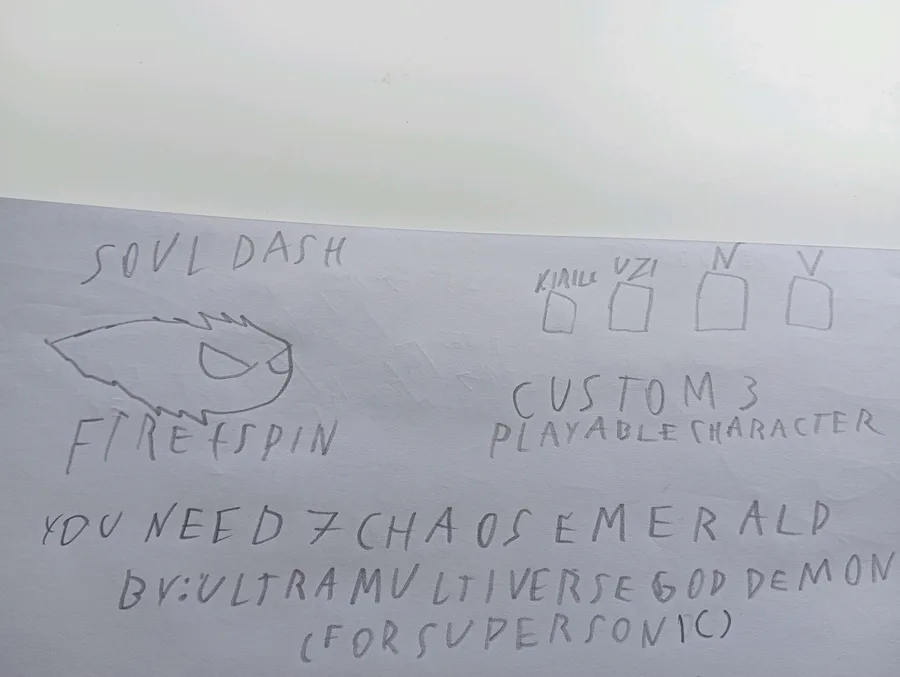 SOUL DASH
KIRILL UZI N V
FIRE+SPIN
CUSTOM 3
PLAYABLE CHARACTER
YOU NEED 7 CHAOS EMERALD
BY:ULTRA MULTIVERSE GOD DEMON
(FOR SUPER SONIC)